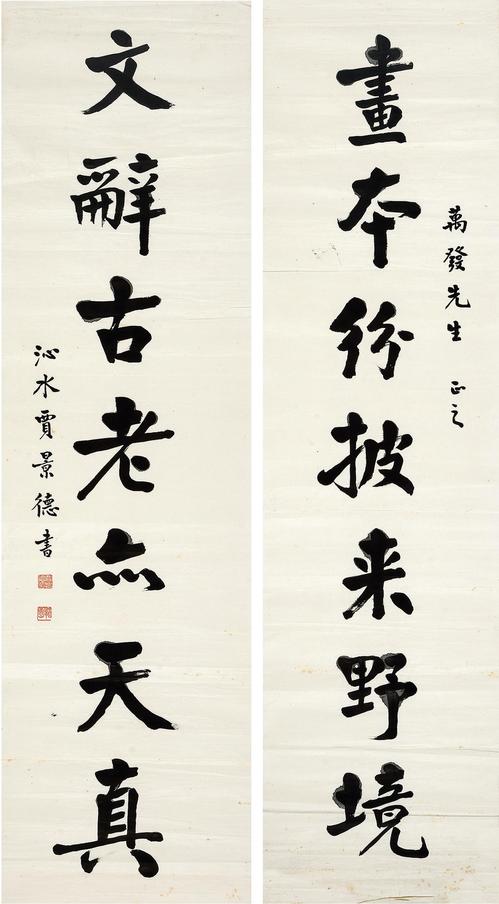 萬發先生 正之
畫本紛披来野境
文辭古老亦天真
沁水賈景德書